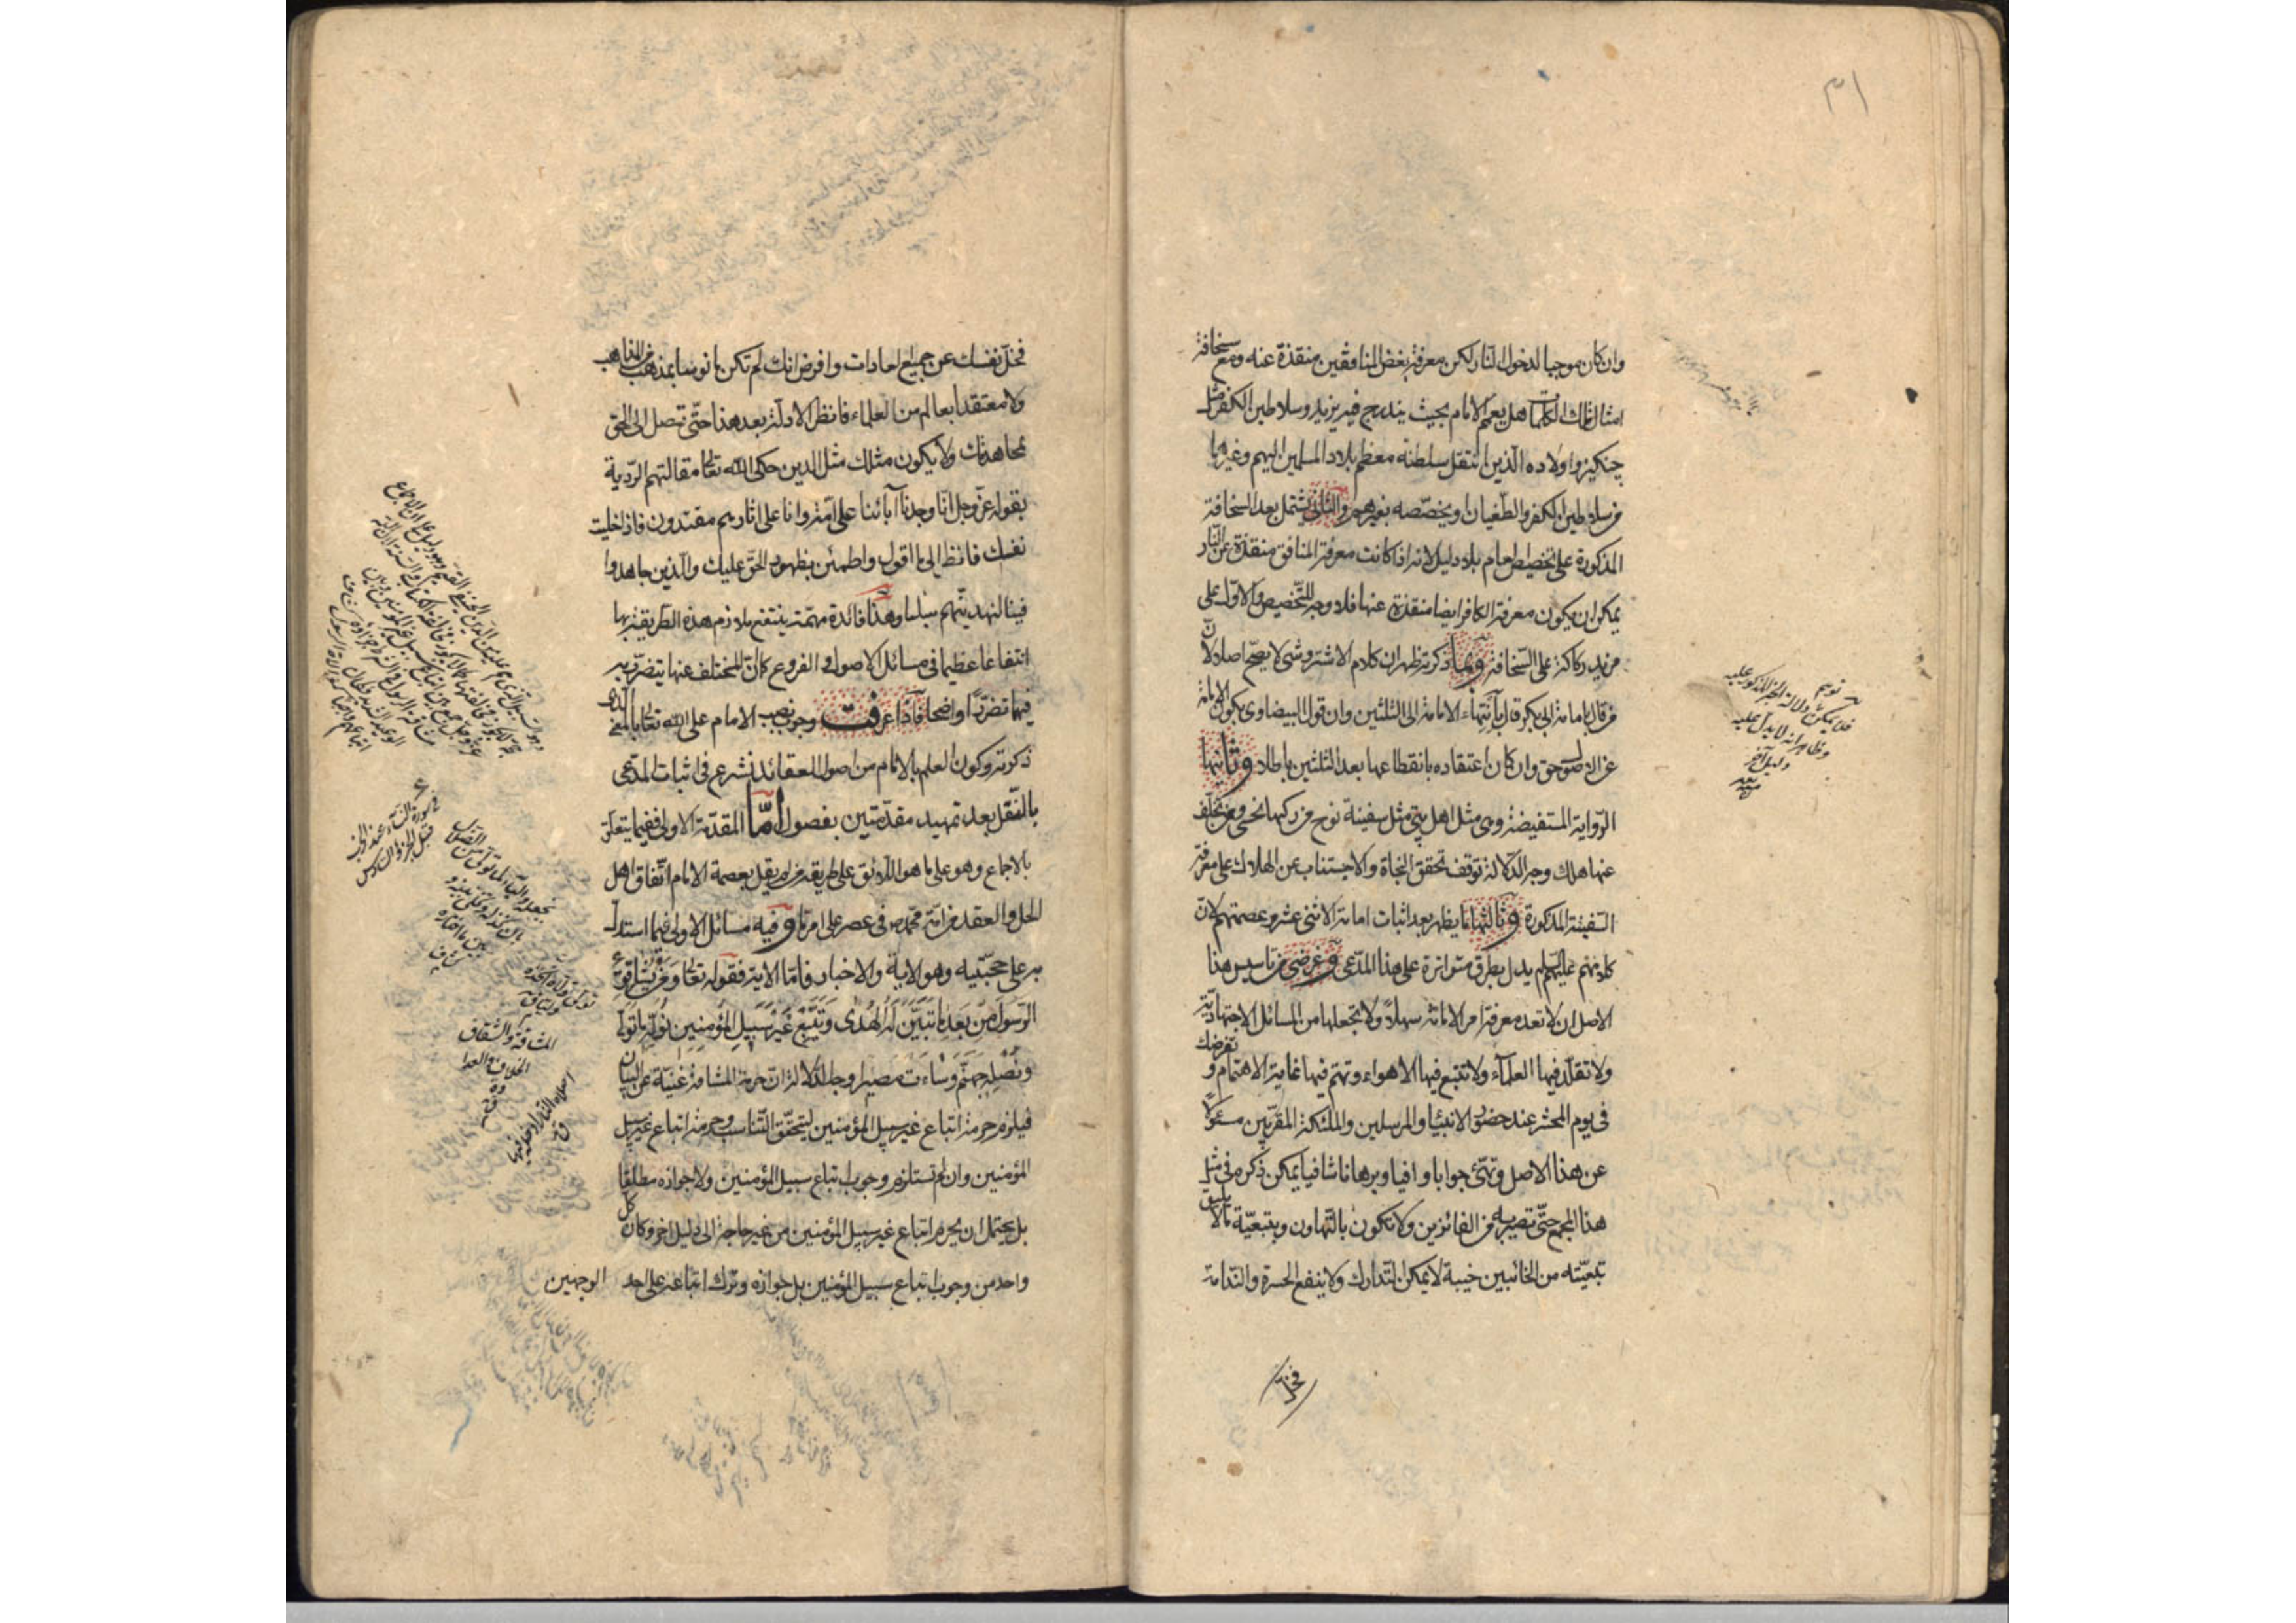 ٣١
وان كان موجبا لدخول النار لكن معرفة بغض المنافقين منقذة عنه ومع سخافة
امثال تلك الكلمات هل يعم الامام بحيث يندرج فيه يزيد وسلاطين الكفر مثل
چنكيز واولاده الذين انتقل سلطنة معظم بلاد المسلمين اليهم وغيرها
من سلاطين الكفر والطغيان او يخصصه بغيرهم والثاني يشتمل بعد السخافة
المذكورة على تخصيص العام بلا دليل لانه اذا كانت معرفة المنافق منقذة عن النار
يمكن ان يكون معرفة الكافر ايضا منقذة عنها فلا وجه للتخصيص والاول على
مزيد ركاكة على السخافة وبما ذكرته ظهر ان كلام الاشتر وشى لا يصح اصلا لان
من قال بامامة ابى بكر قال بانتهاء الامامة الى الثلثين وان قول البيضاوى بكون الامامة
من الاصول حق وان كان اعتقاده بانقطاعها بعد الثلثين باطلا وثانيها
الرواية المستفيضة وهى مثل اهل بيتى مثل سفينة نوح من ركبها نجى ومن تخلف
عنها هلك وجه الدلالة توقف تحقق النجاة والاجتناب عن الهلاك على معرفة
السفينة المذكورة وثالثها ما يظهر بعد اثبات امامة الاثنى عشر وعصمتهم لان
كلامهم عليهم لم يدل بطرق متواترة على هذا المدعى وغرضى من تاسيس هذا
الاصل ان لا تعد معرفة امر الامامة سهلا ولا تجعلها من المسائل الاجتهادية
ولا تقلد فيها العلماء ولا تتبع فيها الاهواء وتهتم فيها غاية الاهتمام وتفرضك
فى يوم المحشر عند حضور الانبياء والمرسلين والملئكة المقربين مسئولا
عن هذا الاصل وتهيئ جوابا وافيا وبرهانا شافيا يمكن ذكره فى مثل
هذا المجمع حتى تصير به من الفائزين ولا تكون بالتهاون وبتبعية ما لا يليق
تبعيته من الخائبين خيبة لا يمكن التدارك ولا ينفع الحسرة والندامة
فخل
توهم
فلا يمكن دلالة الخبر المذكور عليه
وظاهر انه لا يدل عليه
دليل آخر
فخل نفسك عن جميع العادات وافرض انك لم تكن مانوسا بمذهب من المذاهب
ولا معتقدا بعالم من العلماء فانظر الادلة بعد هذا حتى تصل الى الحق
بمجاهدتك ولا يكون مثلك مثل الذين حكى الله تعالى مقالتهم الردية
بقوله عز وجل انا وجدنا آبائنا على امة وانا على اثارهم مقتدون فاذا خليت
نفسك فانظر الى ما اقول واطمئن بظهور الحق عليك والذين جاهدوا
فينا لنهدينهم سبلنا وهذا فائدة مهمة ينتفع ملازم هذه الطريقة بها
انتفاعا عظيما فى مسائل الاصول والفروع كما ان المختلف عنها يتضرر به
فيها تضررا واضحا فاذا عرفت وجوب نصب الامام على الله تعالى بالمعنى الذى
ذكرته وكون العلم بالامام من اصول العقائد نشرع فى اثبات المدعى
بالنقل بعد تمهيد مقدمتين بفصول اما المقدمة الاولى ففيما يتعلق
بالاجماع وهو على ما هو اللائق على طريقة من لم يقل بعصمة الامام اتفاق اهل
الحل والعقد من امة محمد ص فى عصر على امر ما وفيه مسائل الاولى فيما استدل
به على حجيته وهو الاية والاخبار فاما الاية فقوله تعالى ومن يشاقق
الرسول من بعد ما تبين له الهدى ويتبع غير سبيل المؤمنين نوله ما تولى
ونصله جهنم وساءت مصيرا وجه الدلالة ان حرمة المشاقة غنية عن البيان
فيلزم حرمة اتباع غير سبيل المؤمنين ليتحقق التناسب وحرمة اتباع غير سبيل
المؤمنين وان لم تستلزم وجوب اتباع سبيل المؤمنين ولا جوازه مطلقا
بل يحتمل ان يحرم اتباع غير سبيل المؤمنين من غير حاجة الى دليل اخر وكان كل
واحد من وجوب اتباع سبيل المؤمنين بل جوازه وترك اتباعه على احد الوجهين
فى سورة النساء عند الحزب
قبل الجزء السادس
المشاقة والشقاق
الخلاف والعداوة